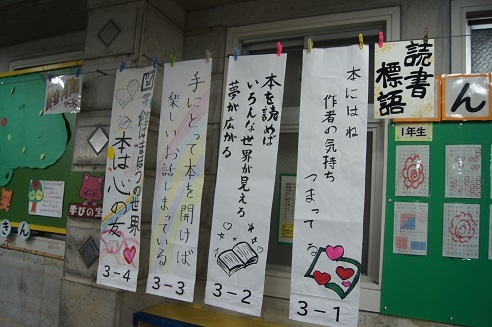 読書
標語
ん
1年生
本にはね
作者の気持ち
つまってる
3-1
本を読めば
いろんな世界が見える
夢が広がる
3-2
手にとって本を開けば
楽しいお話しまっている
3-3
図書館はまほうの世界
本は心の友
3-4
学びの宝
きん